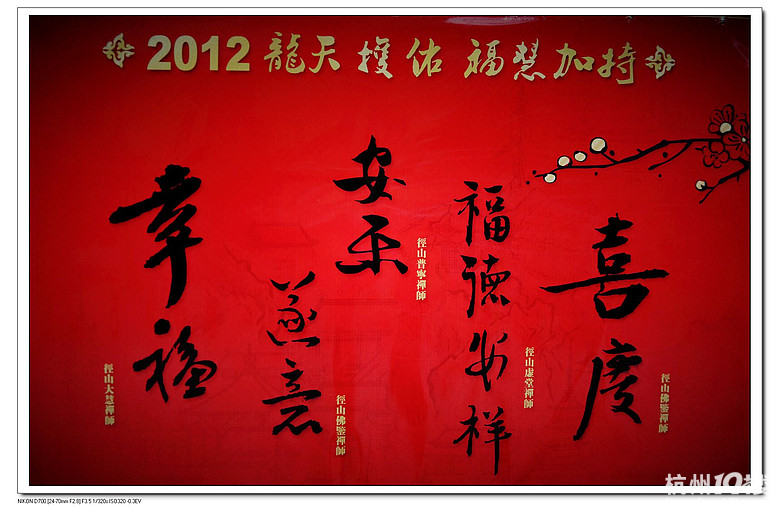 2012 龍天擭佑 福慧加持
喜慶
徑山佛鑒禪師
福德安祥
徑山虛堂禪師
安樂
徑山普寧禪師
遂意
徑山佛鑒禪師
幸福
徑山大慧禪師
杭州19楼
NIKON D700 [24-70mm F2.8] F3.5 1/320s ISO320 -0.3EV